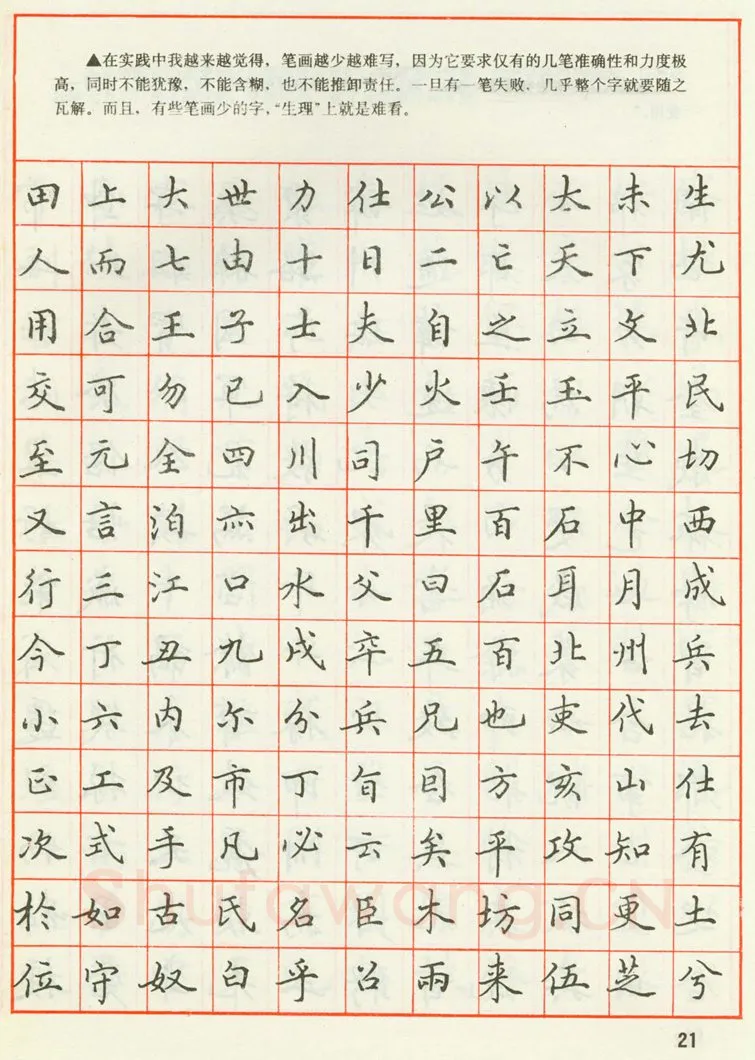 ▲在实践中我越来越觉得，笔画越少越难写，因为它要求仅有的几笔准确性和力度极
高，同时不能犹豫，不能含糊，也不能推卸责任。一旦有一笔失败，几乎整个字就要随之
瓦解。而且，有些笔画少的字，“生理”上就是难看。
田上大世力仕公以太未生
人而七由十日二亡天下尤
用合王子士夫自之立文北
交可勿已入少火壬玉平民
至元全四川司户午不心切
又言泊亦出千里百石中西
行三江口水父曰石耳月成
今丁丑九戌卒五百北州兵
小六内尔分兵兄也吏代去
正工及市丁旨回方亥山仕
次式手凡必云矣平攻知有
於如古氏名臣木坊同更土
位守奴白乎召兩来伍芝兮
Shufawang.CN
21